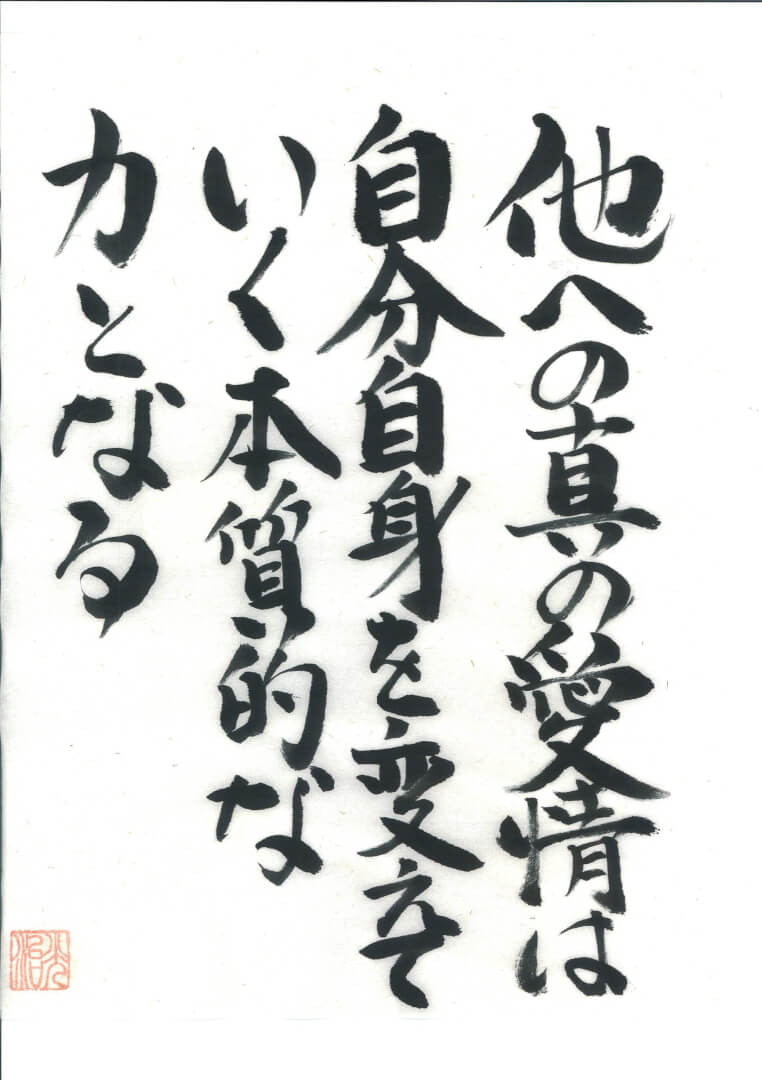 他への真の愛情は
自分自身を変えて
いく本質的な
力となる